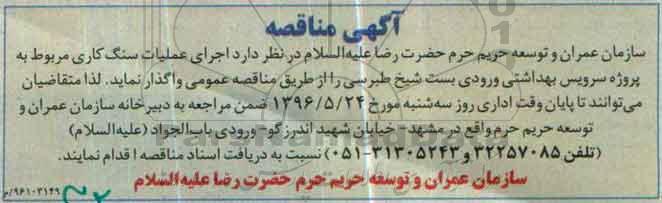 آگهی مناقصه
سازمان عمران و توسعه حریم حرم حضرت رضا علیه‌السلام در نظر دارد اجرای عملیات سنگ کاری مربوط به
پروژه سرویس بهداشتی ورودی بست شیخ طبرسی را از طریق مناقصه عمومی واگذار نماید. لذا متقاضیان
می‌توانند تا پایان وقت اداری روز سه‌شنبه مورخ ۱۳۹۶/۵/۲۴ ضمن مراجعه به دبیرخانه سازمان عمران و
توسعه حریم حرم واقع در مشهد - خیابان شهید اندرزگو - ورودی باب‌الجواد (علیه‌السلام)
(تلفن ۳۲۲۵۷۰۸۵ و ۳۱۳۰۵۲۴۳-۰۵۱) نسبت به دریافت اسناد مناقصه اقدام نمایند.
سازمان عمران و توسعه حریم حرم حضرت رضا علیه السّلام
۹۶۱۰۳۱۴۹/م